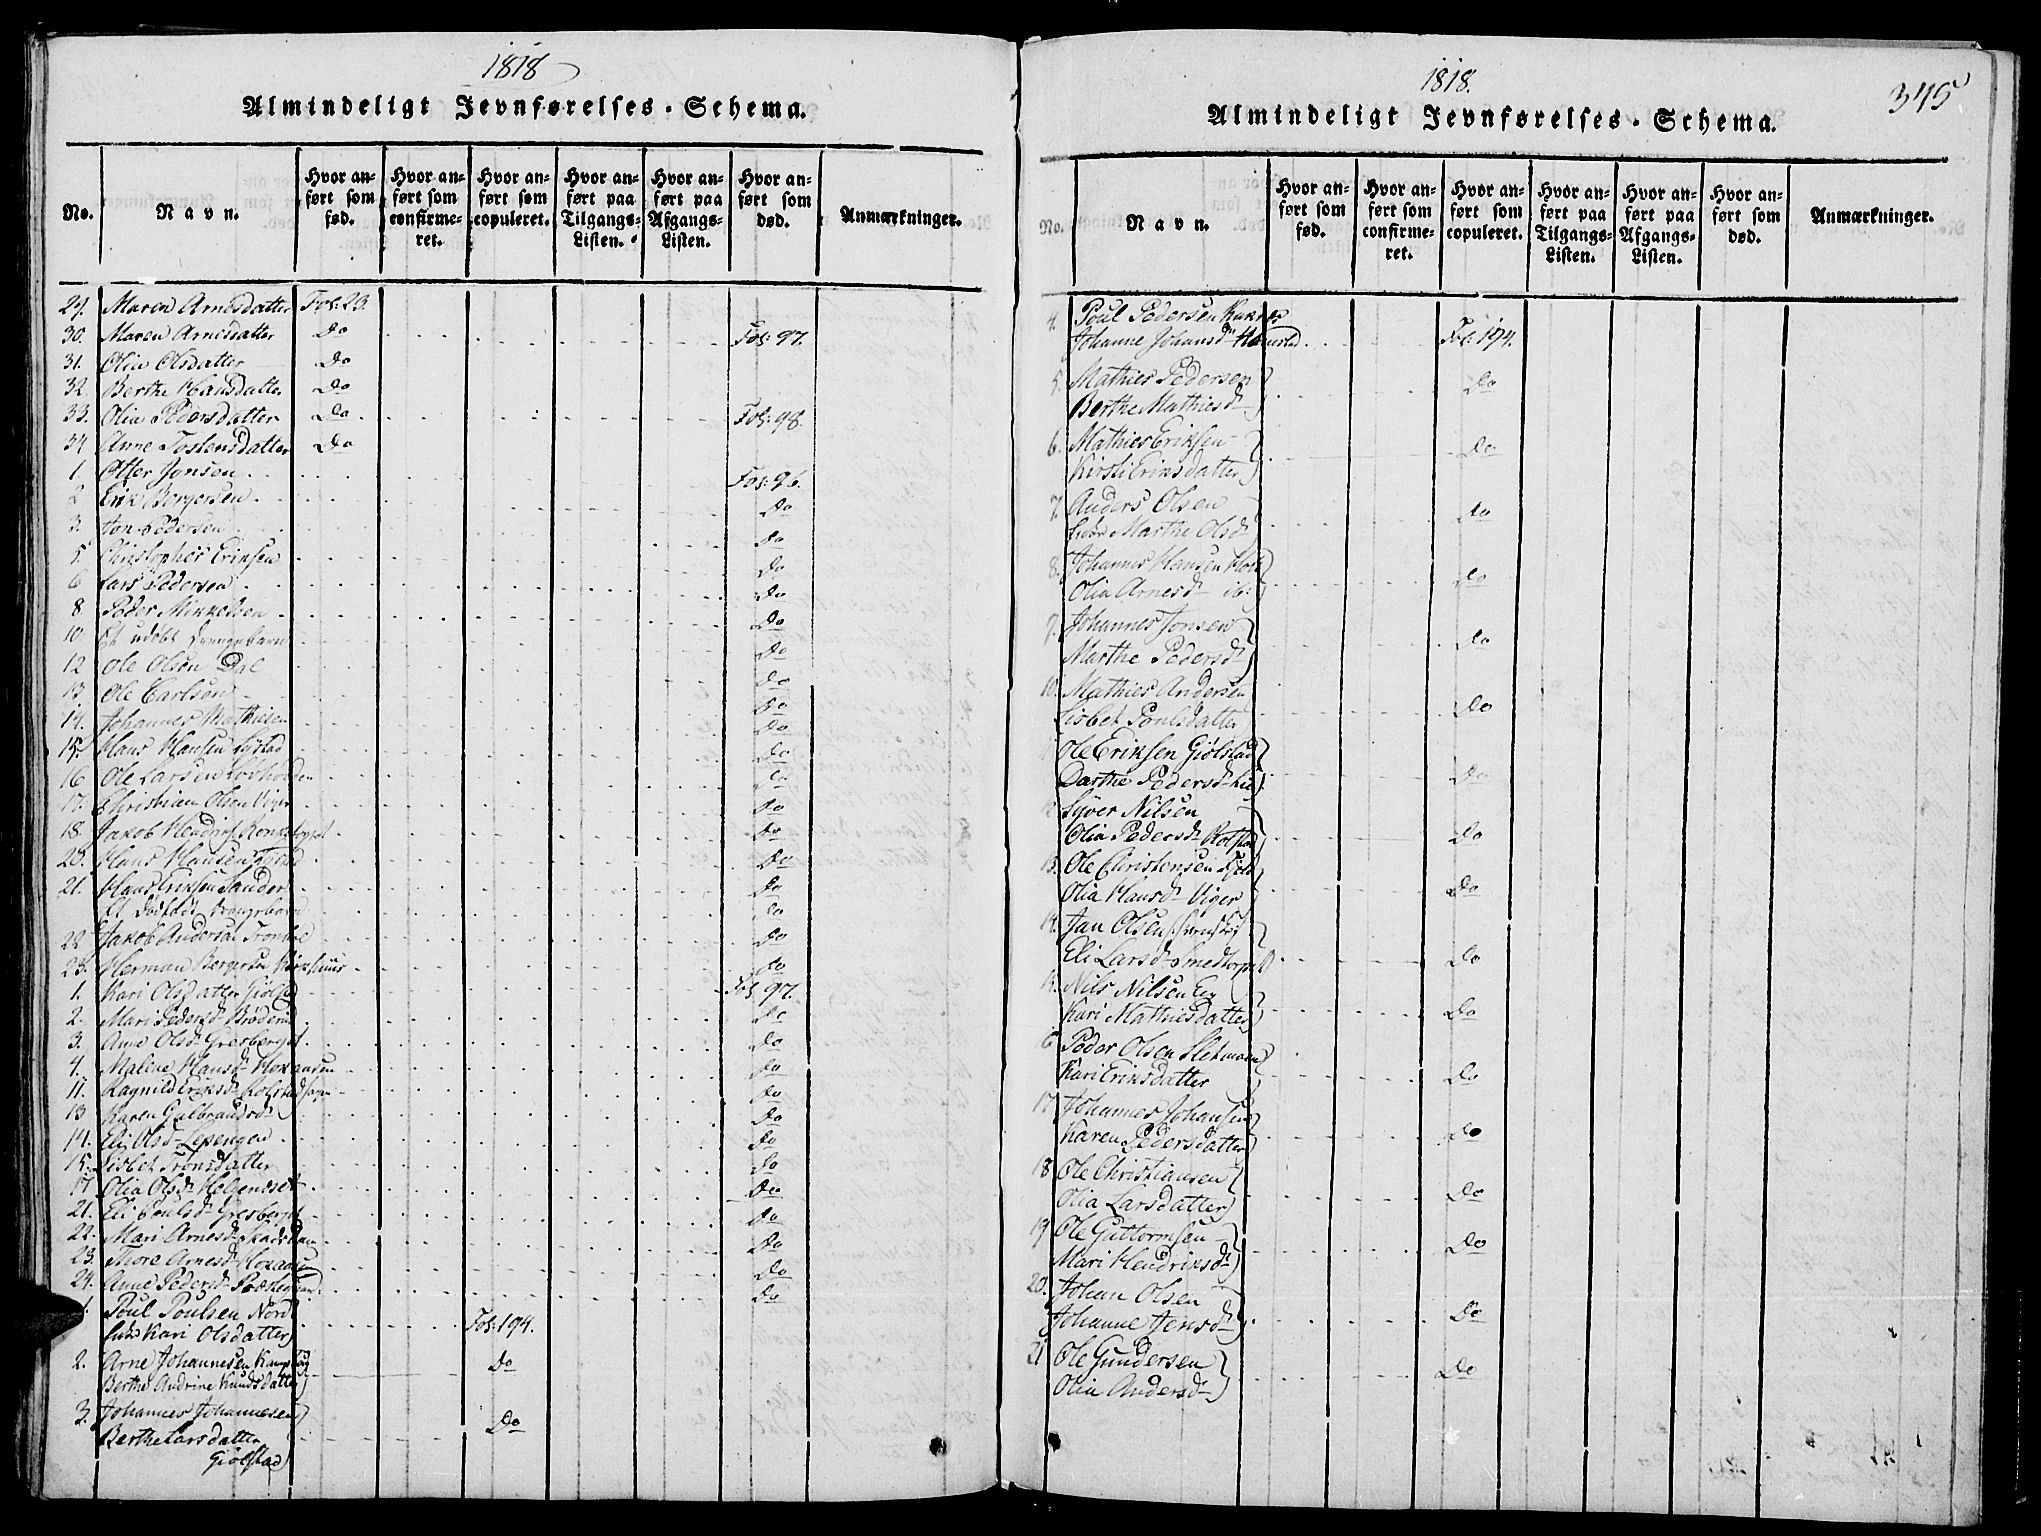 1818
Almindeligt Jevnførelses-Schema.
No.
Navn.
Hvor anført som fød.
Hvor anført som confirmeret.
Hvor anført som copuleret.
Hvor anført paa Tilgangs-Listen.
Hvor anført paa Afgangs-Listen.
Hvor anført som død.
Anmærkninger.
29. Maren Arnesdatter Fol: 23.
30. Maren Arnesdatter Do Fol: 97.
31. Olia Olsdatter Do
32. Berthe Hansdatter Do
33. Olia Pedersdatter Do Fol: 98.
34 Anne Tostensdatter Do
1. Otter Jonsen Fol: 96.
2 Erik Bergersen Do
3. Jon Pedersen Do
5. Christopher Eriksen Do
6 Lars Pedersen Do
8 Peder Mikkelsen Do
10. Et udøbt Drengebarn Do
12 Ole Olsen Dal Do
13 Ole Carlsen Do
14. Johannes Mathiesen Do
15. Hans Hansen Do
16 Ole Larsen Do
17. Christian Olsen Viger Do
18. Jakob Do
20. Hans Hansen Do
21. Hans Eriksen Sander Do
Et Dødfød Drengebarn Do
22 Jakob Andersen Do
23. Herman Bergersen Do
1. Kari Olsdatter Giølstad Fol 97.
2. Mari Pedersd Do
3. Ane Olsd Gresberget Do
4. Malene Hansd Do
11. Ragnild Eriksd Do
13 Karen Gulbrandsd Do
14. Eli Olsd Do
15. Lisbet Tronsdatter Do
17 Olia Olsd Helgenset Do
21. Eli Poulsd Gresberget Do
22. Mari Arnesd Do
23. Thore Arnesd Do
24. Anne Pedersd Do
1. Poul Poulsen Nord
Kari Olsdatter Fol: 194.
2. Arne Johannesen Do
Berthe Andrine Knudsdatter
3. Johannes Johannesen Do
Berthe Larsdatter
Giølstad
1818.
345
Almindeligt Jevnførelses-Schema.
No.
Navn.
Hvor anført som fød.
Hvor anført som confirmeret.
Hvor anført som copuleret.
Hvor anført paa Tilgangs-Listen.
Hvor anført paa Afgangs-Listen.
Hvor anført som død.
Anmærkninger.
4. Poul Pedersen
Johanne Johansd Fol: 194.
5. Mathies Pedersen Do
Berthe Mathiesd
6. Mathies Eriksen Do
Kirsti Eriksdatter
7. Anders Olsen Do
Marthe Olsd
8. Johannes Hansen Do
Olia Arnesd ib:
9. Johannes Jonsen Do
Marthe Pedersd
10. Mathies Andersen Do
Lisbet Poulsdatter
Ole Eriksen Giølstad
Dorthe Pedersd Do
Syver Nilsen
Olia Pedersd Rolstad Do
13. Ole Christensen
Olia Hansd Viger Do
14. Jan Olsen
Eli Larsd Smedtorpet Do
Nils Nilsen
Kari Mathiesdatter Do
6 Peder Olsen Sletmoen
Kari Eriksdatter Do
17 Johannes Johansen
Karen Pedersdatter Do
18 Ole Christiansen
Olia Larsdatter Do
19 Ole Guttormsen Do
Mari Hendriksd
20. Johan Olsen
Johanne Jensd Do
21 Ole Gundersen Do
Olia Andersd